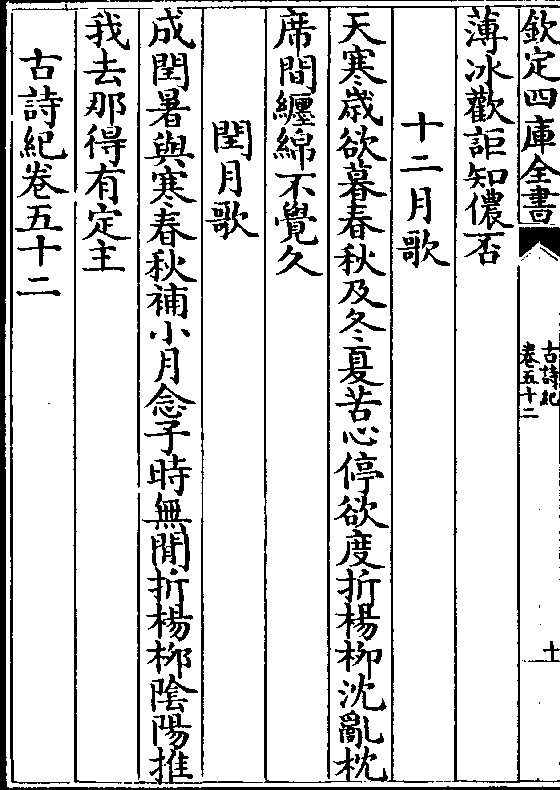 欽定四庫全書
古詩紀
卷五十二
十
薄冰歡詎知儂否
十二月歌
天寒歳欲暮春秋及冬夏苦心停欲度折楊柳沈亂枕
席間纒綿不覺久
閏月歌
成閏暑與寒春秋補小月念子時無閒折楊柳陰陽推
我去那得有定主
古詩紀卷五十二